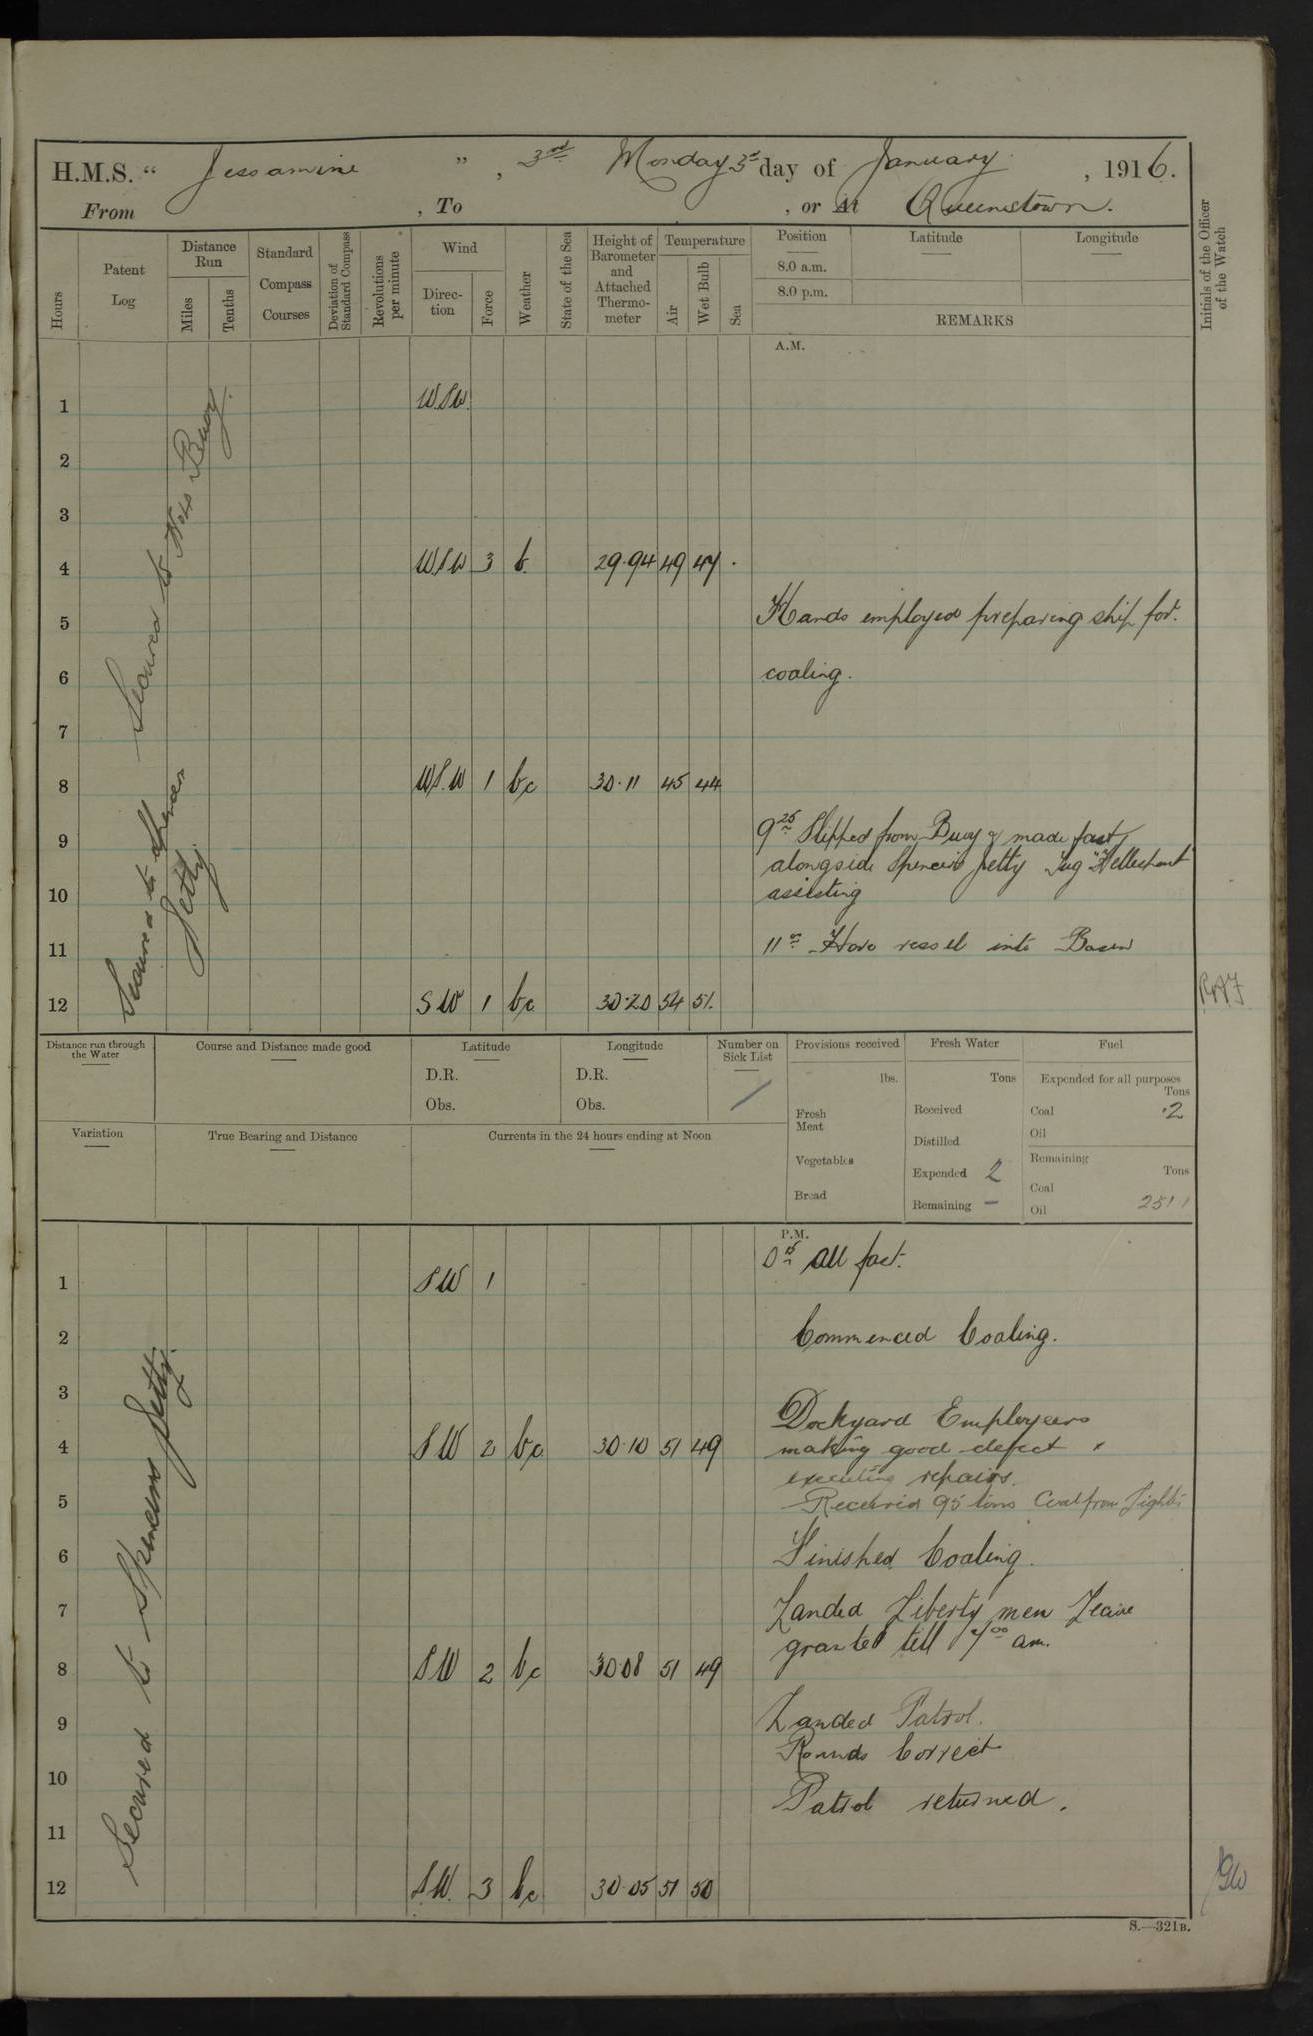 H.M.S. “ Jessamine ” , 3rd Monday 3rd day of January , 1916.
From , To , or At Queenstown.
Hours
Patent Log
Distance Run
Miles
Tenths
Standard Compass Courses
Deviation of Standard Compass
Revolutions per minute
Wind
Direction
Force
Weather
State of the Sea
Height of Barometer and Attached Thermometer
Temperature
Air
Wet Bulb
Sea
Position
8.0 a.m.
8.0 p.m.
Latitude
Longitude
REMARKS
Initials of the Officer of the Watch
A.M.
1 WSW.
2
3
4 WSW 3 b. 29.94 49 47
Secured to Buoy.
5 Hands employed preparing ship for
6 coaling.
7
8 WSW 1 bc 30.11 45 44
Secured to Spencer Jetty.
9 9 25 Slipped from Buoy & made fast
alongside Spencer's Jetty Tug "Hellespont"
10 assisting
11 11 Hove vessel into Basin
12 SW 1 bc 30.20 54 51. RAF
Distance run through the Water
Course and Distance made good
Latitude
D.R.
Obs.
Longitude
D.R.
Obs.
Number on Sick List
Provisions received
lbs.
Fresh Meat
Vegetables
Bread
Fresh Water
Tons
Received
Distilled
Expended 2
Remaining –
Fuel
Expended for all purposes
Tons
Coal .2
Oil
Remaining
Tons
Coal
Oil
Variation
True Bearing and Distance
Currents in the 24 hours ending at Noon
P.M.
0 15 All fast.
1 SW 1
2 Commenced Coaling.
3
Dockyard Employees
4 SW 2 bc 30.10 51 49 making good defect &
executing repairs.
5 Received 95 tons Coal from
6 Finished Coaling.
7 Landed Liberty men Leave
granted till 7 00 am.
8 SW 2 bc 30.08 51 49
Secured to Spencers Jetty.
9 Landed Patrol.
Rounds Correct
10 Patrol returned.
11
12 SW. 3 bc 30.05 51 50
S.—321B.